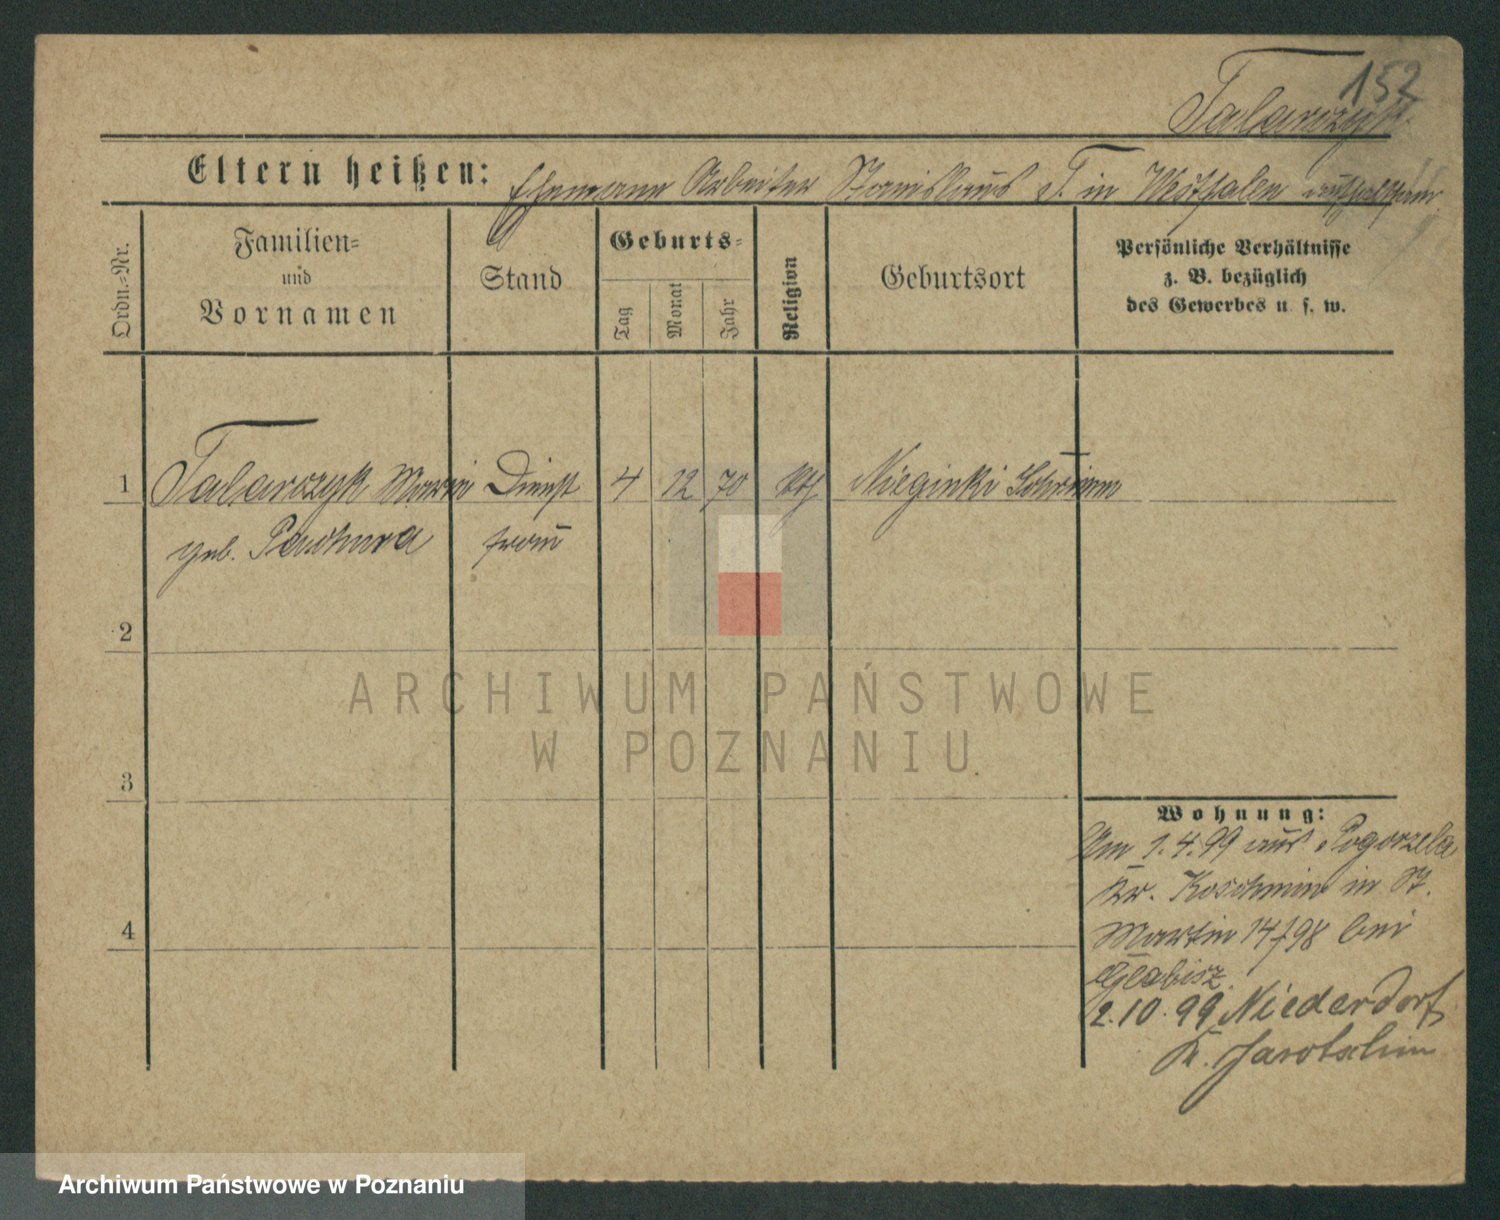 152
Talarczyk.
Eltern heißen: Ehemann Arbeiter Stanislaus T. in Westfalen
Ordn.-Nr.
Familien-
und
Vornamen
Stand
Geburts-
Tag
Monat
Jahr
Religion
Geburtsort
Persönliche Verhältnisse
z. B. bezüglich
des Gewerbes u. s. w.
1 Talarczyk Marie Dienst 4 12 70 kth Schrimm
geb. frau
2
3
4
Wohnung:
Am 1.4.99 aus Pogorzela
Kr. Koschmin in St.
Martin 14/98 bei
Glabisz.
2.10.99 Niederdorf
K. Jarotschin
ARCHIWUM PAŃSTWOWE
W POZNANIU
Archiwum Państwowe w Poznaniu